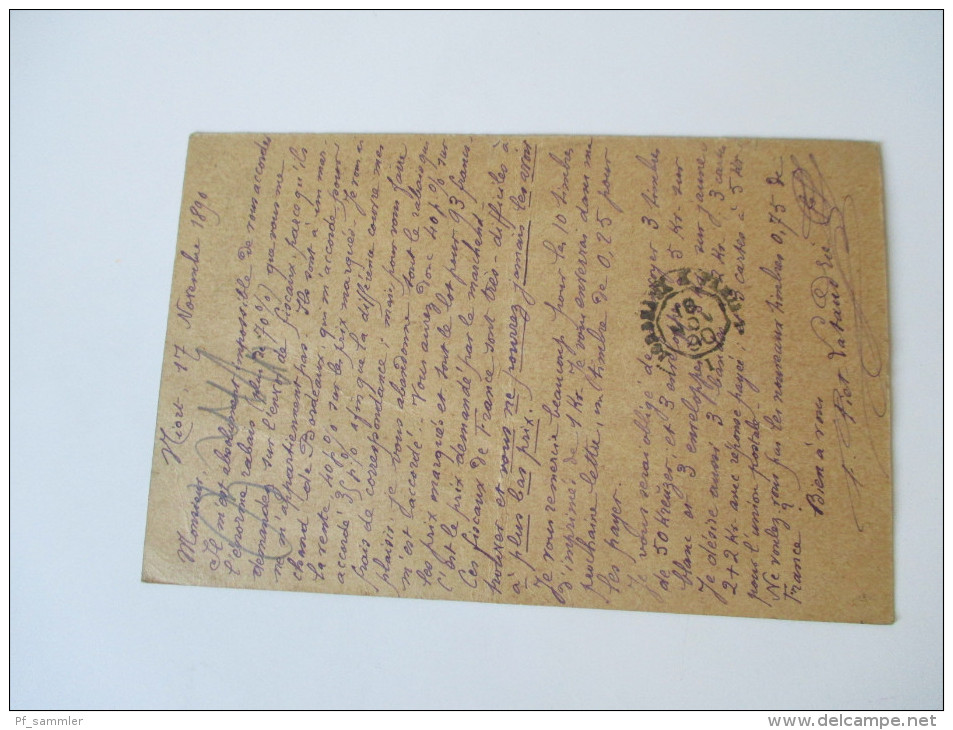 Niort 17 Novembre 1890
Monsieur
Il m'est absolument impossible de vous accorder
l'énorme rabais (plus de 70%) que vous me
demandez sur l'envoi de fiscaux, parcequ'ils
ne m'appartiennent pas. Ils sont à un mar-
chand de Bordeaux, qui m'accorde pour
la vente 40% sur les prix marqués. Je vous ai
accordé 35% afin que la différence couvre mes
frais de correspondance; mais, pour vous faire
plaisir je vous abandonne tout le rabais qui
m'est accordé. Vous aurez donc 40% sur
les prix marqués et tout le lot pour 93 francs
c'est le prix demandé par le marchand.
Ces fiscaux de France sont très-difficiles à
trouver et vous ne pourrez jamais les avoir
à plus bas prix.
Je vous remercie beaucoup pour les 10 timbres
d'imprimés de 1 Kr. Je vous enverrai dans ma
prochaine lettre, un timbre de 0,25 pour
les payer.
Je vous serai obligé de envoyer 3 timbres
de 50 Kreuzer, et 3 5 Kr. sur
blanc et 3 enveloppes sur jaune.
Je désire aussi 3 Kr. 3 cartes
2+2 Kr. avec réponse payée; cartes à 5 Kr
pour l'union postale
Ne voulez vous pas les nouveaux timbres 0,75 de
France?
Bien à vous
Pf_sammler
www.delcampe.net